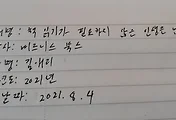 : 책 읽기가 필요하지 않은 인생은 
사 : 비즈니스 북스
명 : 김애리
도 : 2021년
날짜 : 2021. 8. 4